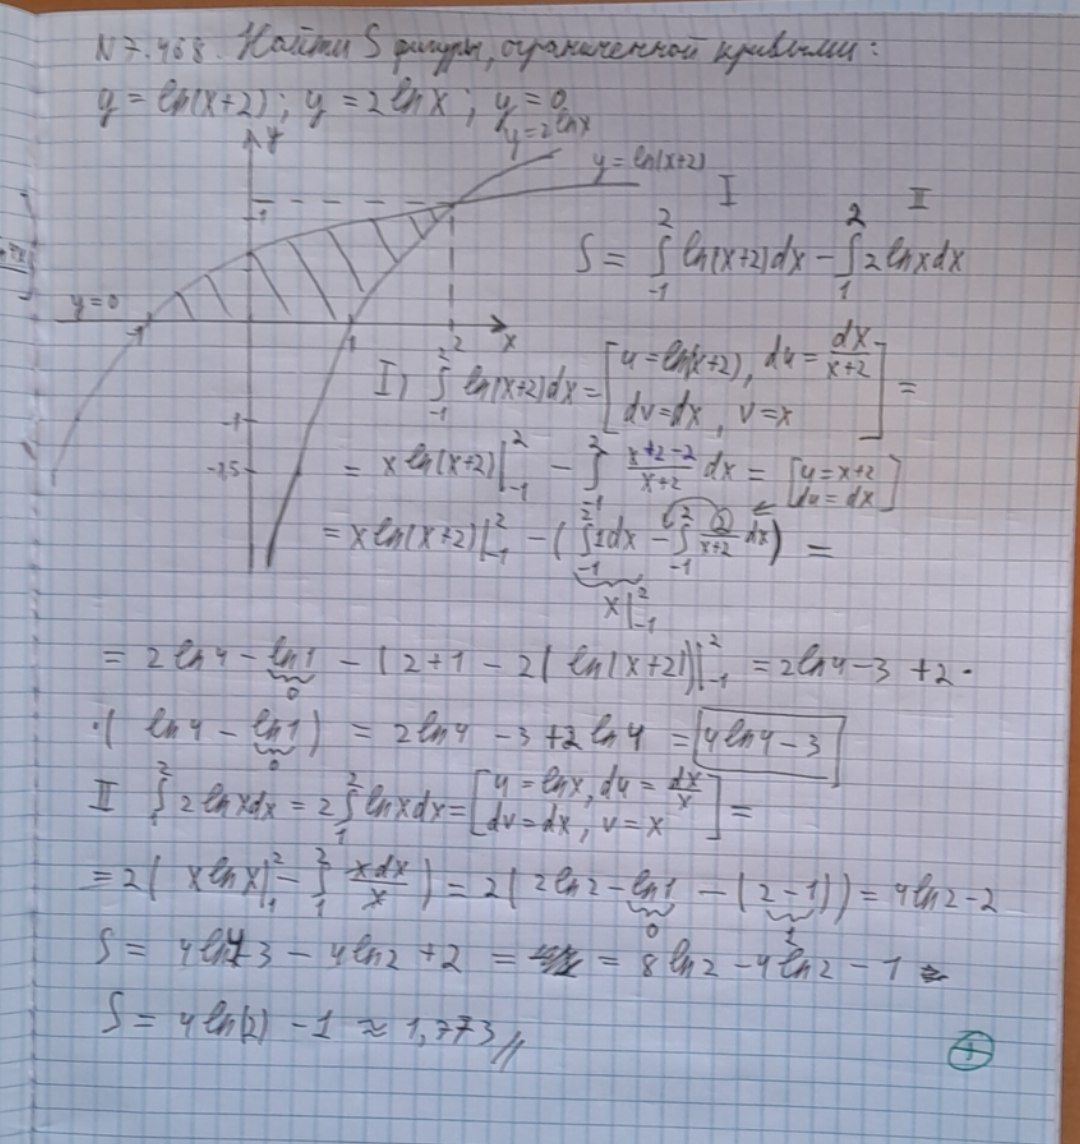 N 7.468. Найти S фигуры, ограниченной кривыми:
y = ln(x+2); y = 2 ln x; y = 0
y = 2 ln x
y
y = ln(x+2)
1
I II
S = ∫_{-1}^{2} ln(x+2)dx − ∫_{1}^{2} 2 ln x dx
y=0
-1 1 2 x
I) ∫_{-1}^{2} ln(x+2)dx = [u = ln(x+2), du = dx/(x+2); dv = dx, v = x] =
-1
= x ln(x+2)|_{-1}^{2} − ∫_{-1}^{2} (x+2−2)/(x+2) dx = [u = x+2; du = dx]
-1,5
= x ln(x+2)|_{-1}^{2} − (∫_{-1}^{2} 1dx − ∫_{-1}^{2} 2/(x+2) dx) =
x|_{-1}^{2}
= 2 ln 4 − ln 1 − (2+1 − 2( ln(x+2))|_{-1}^{2} = 2 ln 4 − 3 + 2 ·
0
·( ln 4 − ln 1 ) = 2 ln 4 − 3 + 2 ln 4 = 4 ln 4 − 3
0
II ∫_{1}^{2} 2 ln x dx = 2 ∫_{1}^{2} ln x dx = [u = ln x, du = dx/x; dv = dx, v = x] =
= 2( x ln x|_{1}^{2} − ∫_{1}^{2} x dx/x ) = 2( 2 ln 2 − ln 1 − (2−1)) = 4 ln 2 − 2
0 1
S = 4 ln 4 − 3 − 4 ln 2 + 2 = = 8 ln 2 − 4 ln 2 − 1
S = 4 ln(2) − 1 ≈ 1,773 //
+